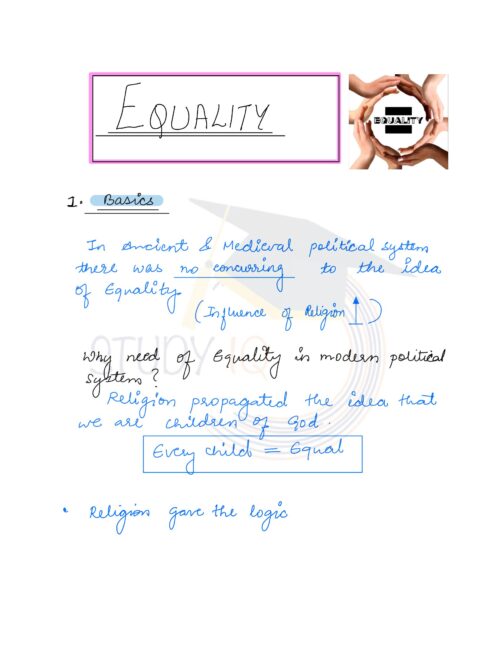 EQUALITY
EQUALITY
1. Basics
In Ancient & Medieval political system
there was no concurring to the idea
of Equality
(Influence of Religion ↑)
Why need of Equality in modern political
System?
Religion propagated the idea that
we are children of God.
Every child = Equal
• Religion gave the logic
STUDY IQ